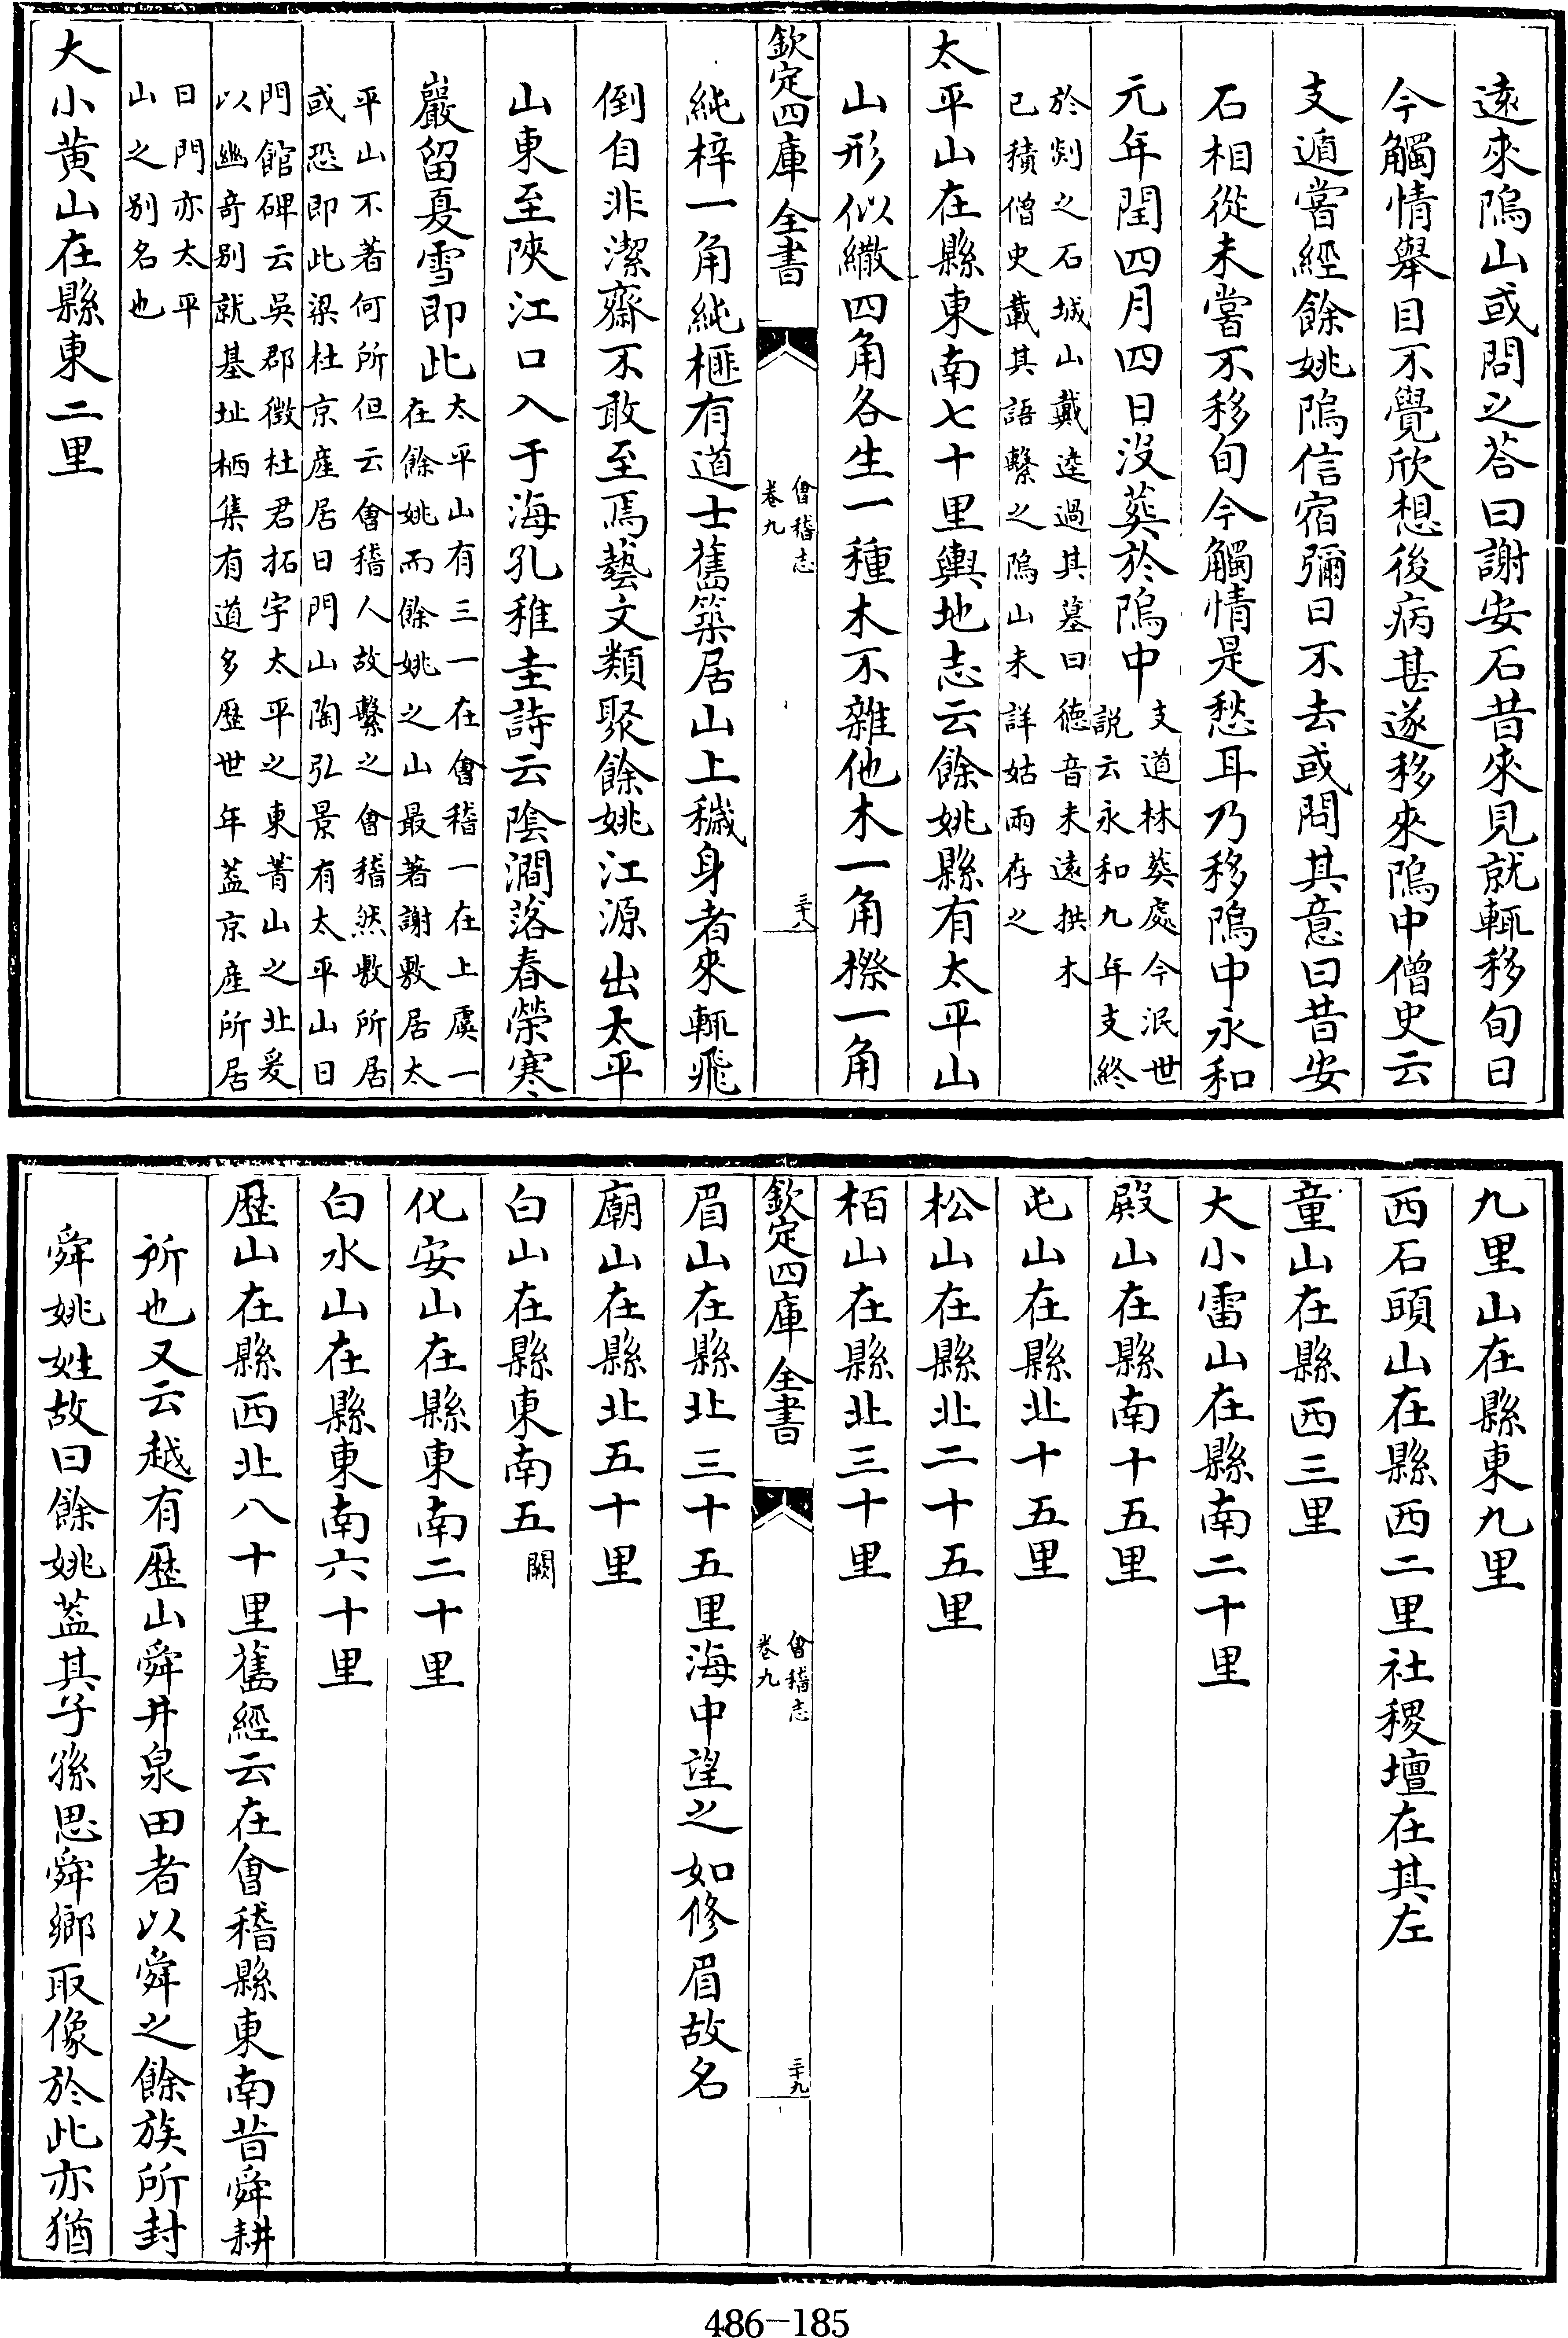 遠來隝山或問之荅曰謝安石昔來見就輒移旬日
今觸情舉目不覺欣想後病甚遂移來隝中僧史云
支遁嘗經餘姚隝信宿彌日不去或問其意曰昔安
石相從未嘗不移旬今觸情是愁耳乃移隝中永和
元年閏四月四日没葬於隝中
支道林葬處今泯世
説云永和九年支終
於剡之石城山戴逵過其墓曰徳音未遠拱木
已積僧史載其語繫之隝山未詳姑兩存之
太平山在縣東南七十里輿地志云餘姚縣有太平山
山形似繖四角各生一種木不雜他木一角㯤一角
欽定四庫全書
會稽志
卷九
三十八
純梓一角純榧有道士舊築居山上穢身者來輒飛
倒自非潔齋不敢至焉藝文類聚餘姚江源出太平
山東至陜江口入于海孔稚圭詩云隂澗落春榮寒
巖留夏雪即此
太平山有三一在會稽一在上虞一
在餘姚而餘姚之山最著謝敷居太
平山不著何所但云會稽人故繫之會稽然敷所居
或恐即此梁杜京産居日門山陶弘景有太平山日
門館碑云吳郡徴杜君拓宇太平之東菁山之北爰
以幽竒别就基址栖集有道多歴世年葢京産所居
日門亦太平
山之别名也
大小黄山在縣東二里
九里山在縣東九里
西石頭山在縣西二里社稷壇在其左
童山在縣西三里
大小雷山在縣南二十里
殿山在縣南十五里
屯山在縣北十五里
松山在縣北二十五里
栢山在縣北三十里
欽定四庫全書
會稽志
卷九
三十九
眉山在縣北三十五里海中望之如修眉故名
廟山在縣北五十里
白山在縣東南五
闕
化安山在縣東南二十里
白水山在縣東南六十里
歴山在縣西北八十里舊經云在會稽縣東南昔舜耕
所也又云越有歴山舜井泉田者以舜之餘族所封
舜姚姓故曰餘姚葢其子孫思舜鄉取像於此亦猶
486-185